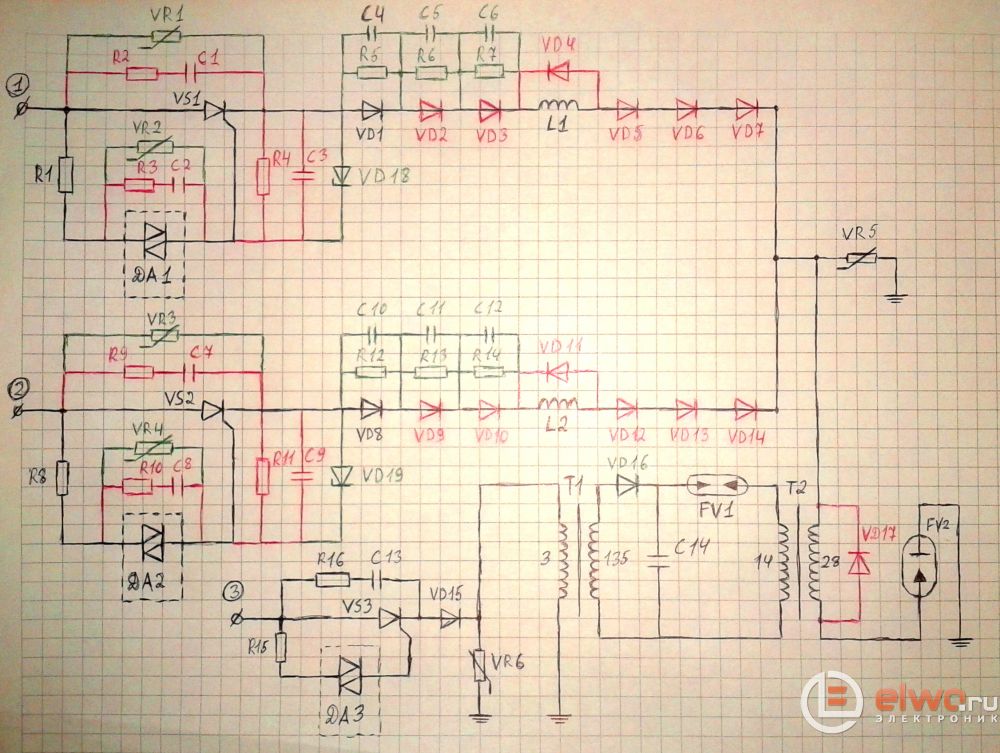 VR1
R2 C1
1
VS1
VR2
R3 C2
R1
R4 C3
DA1
C4 C5 C6
R5 R6 R7
VD4
VD1 VD2 VD3 L1 VD5 VD6 VD7
VD18
VR5
VR3
R9 C7
2
VS2
VR4
R10 C8
R8
R11 C9
DA2
C10 C11 C12
R12 R13 R14
VD11
VD8 VD9 VD10 L2 VD12 VD13 VD14
VD19
VD16
T1 FV1 T2
C14
3 135 14 28
VD17
FV2
R16 C13
3
VS3 VD15
R15
VR6
DA3
elwo.ru
ЭЛЕКТРОНИК